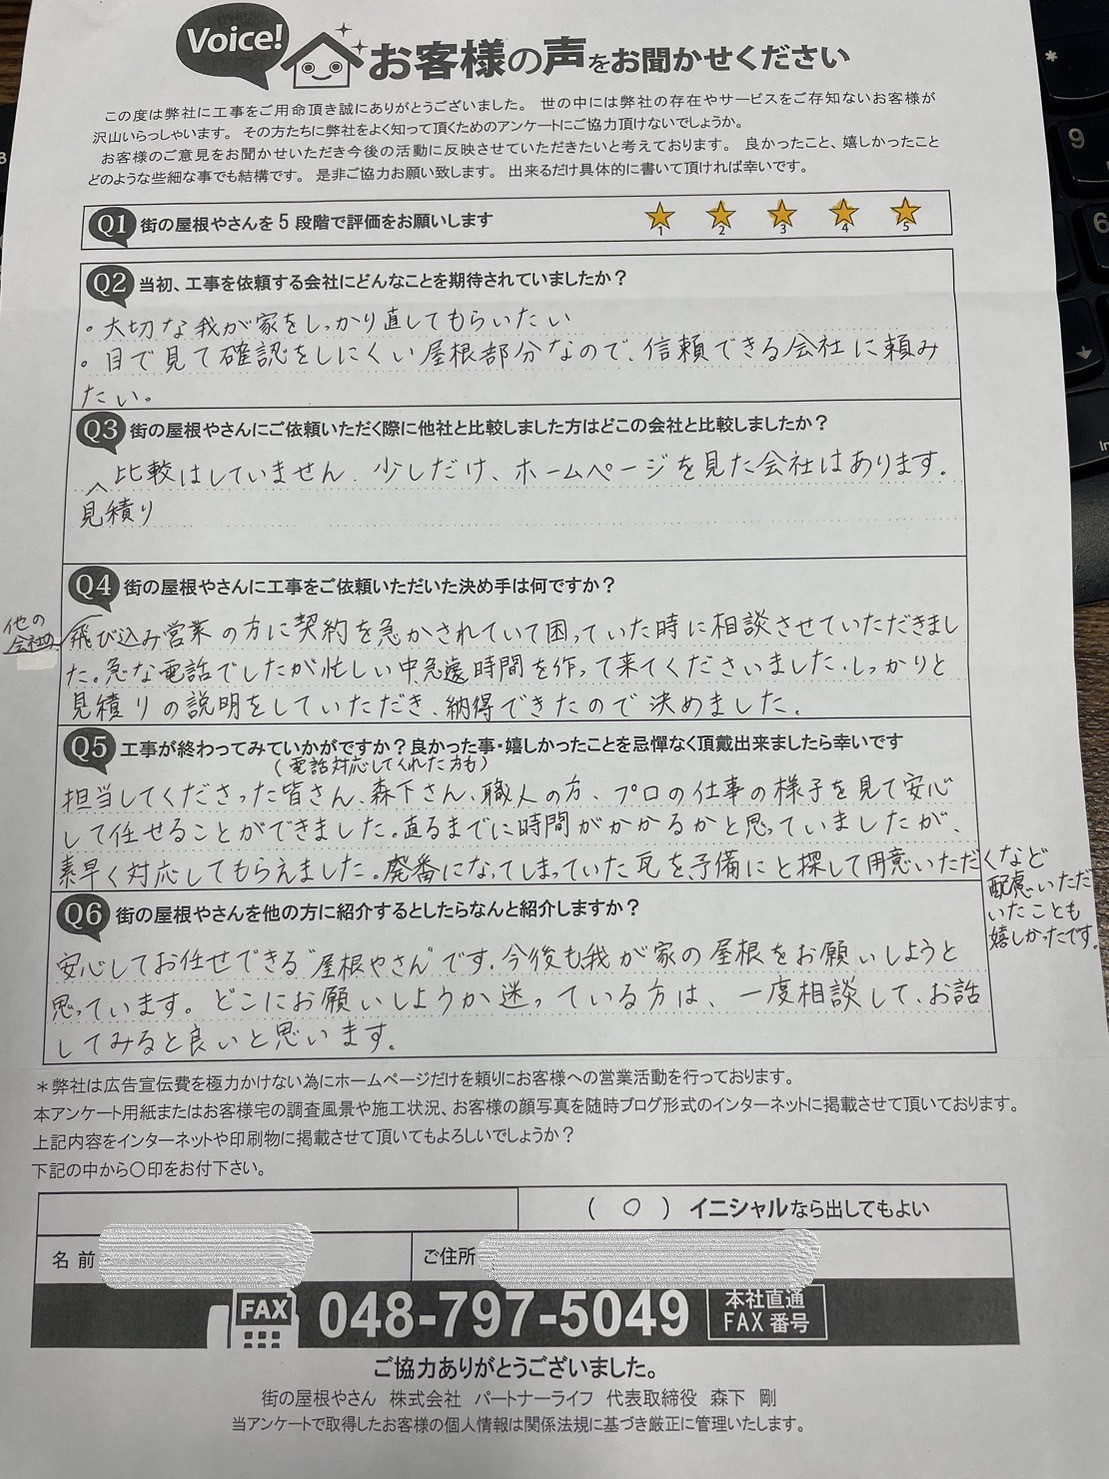 Voice!
お客様の声をお聞かせください
この度は弊社に工事をご用命頂き誠にありがとうございました。 世の中には弊社の存在やサービスをご存知ないお客様が
沢山いらっしゃいます。 その方たちに弊社をよく知って頂くためのアンケートにご協力頂けないでしょうか。
お客様のご意見をお聞かせいただき今後の活動に反映させていただきたいと考えております。 良かったこと、嬉しかったこと
どのような些細な事でも結構です。 是非ご協力お願い致します。 出来るだけ具体的に書いて頂ければ幸いです。
Q1 街の屋根やさんを 5 段階で評価をお願いします
1 2 3 4 5
Q2 当初、工事を依頼する会社にどんなことを期待されていましたか？
。大切な我が家をしっかり直してもらいたい
。目で見て確認をしにくい屋根部分なので、信頼できる会社に頼み
たい。
Q3 街の屋根やさんにご依頼いただく際に他社と比較しました方はどこの会社と比較しましたか？
比較はしていません。少しだけ、ホームページを見た会社はあります。
見積り
Q4 街の屋根やさんに工事をご依頼いただいた決め手は何ですか？
他の
会社の
飛び込み営業の方に契約を急かされていて困っていた時に相談させていただきまし
た。急な電話でしたが忙しい中急遽時間を作って来てくださいました。しっかりと
見積りの説明をしていただき、納得できたので決めました。
Q5 工事が終わってみていかがですか？良かった事・嬉しかったことを忌憚なく頂戴出来ましたら幸いです
（電話対応してくれた方も）
担当してくださった皆さん、森下さん、職人の方、プロの仕事の様子を見て安心
して任せることができました。直るまでに時間がかかるかと思っていましたが、
素早く対応してもらえました。廃番になってしまっていた瓦を予備にと探して用意いただくなど
配慮いただ
いたことも
嬉しかったです。
Q6 街の屋根やさんを他の方に紹介するとしたらなんと紹介しますか？
安心してお任せできる"屋根やさん"です。今後も我が家の屋根をお願いしようと
思っています。どこにお願いしようか迷っている方は、一度相談して、お話
してみると良いと思います。
＊弊社は広告宣伝費を極力かけない為にホームページだけを頼りにお客様への営業活動を行っております。
本アンケート用紙またはお客様宅の調査風景や施工状況、お客様の顔写真を随時ブログ形式のインターネットに掲載させて頂いております。
上記内容をインターネットや印刷物に掲載させて頂いてもよろしいでしょうか？
下記の中から〇印をお付下さい。
（ ○ ）イニシャルなら出してもよい
名 前
ご住所
FAX 048-797-5049 本社直通
FAX 番号
ご協力ありがとうございました。
街の屋根やさん 株式会社 パートナーライフ 代表取締役 森下 剛
当アンケートで取得したお客様の個人情報は関係法規に基づき厳正に管理いたします。
*
9
6